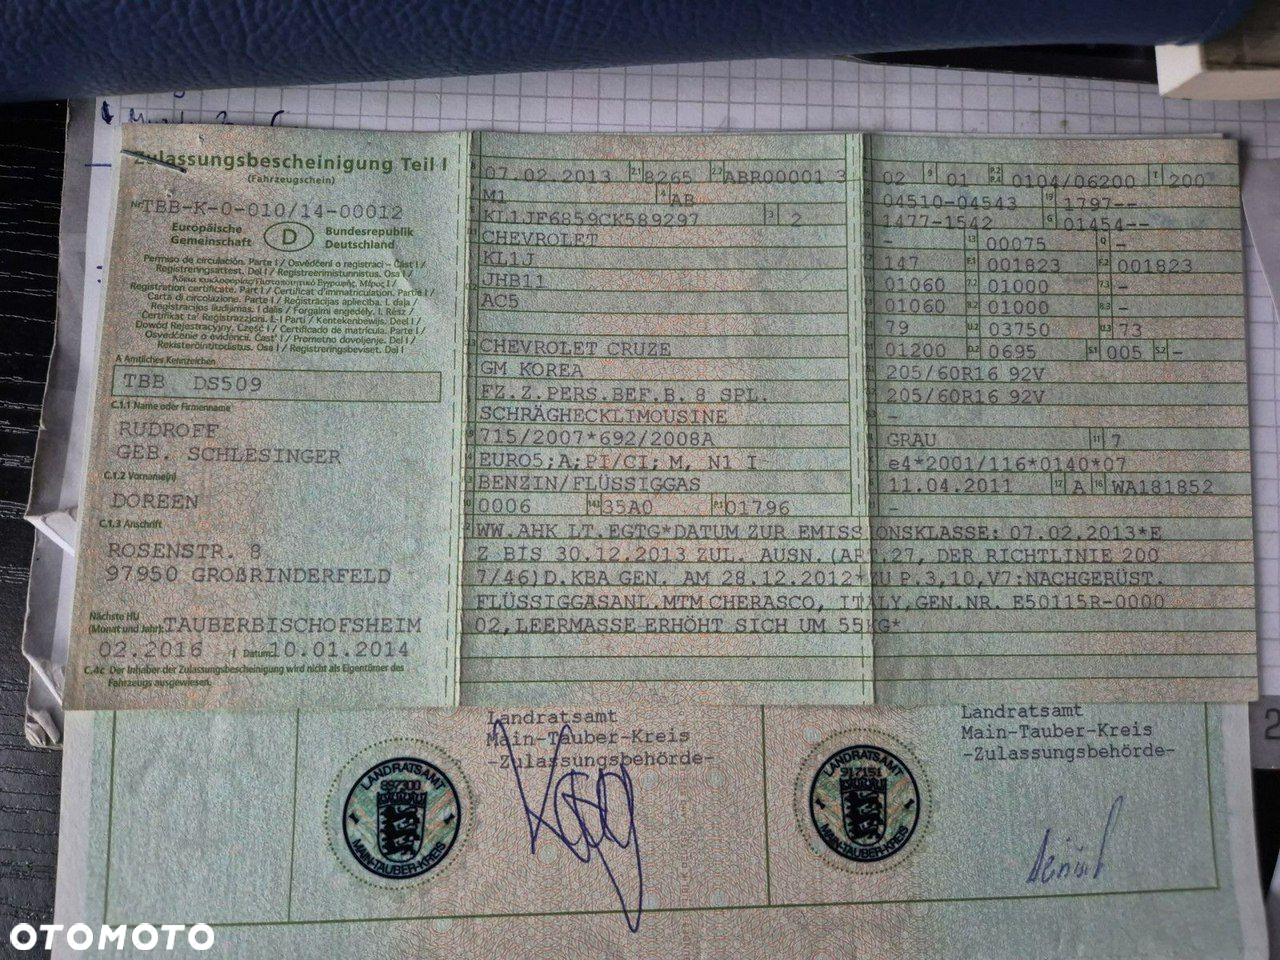 Zulassungsbescheinigung Teil I
(Fahrzeugschein)
Nr. TBB-K-0-010/14-00012
Europäische Gemeinschaft
D
Bundesrepublik Deutschland
Permiso de circulación. Parte I / Osvědčení o registraci – Část I /
Registreringsattest. Del I / Registreerimistunnistus. Osa I /
Άδεια κυκλοφορίας/Πιστοποιητικό Εγγραφής. Μέρος I /
Registration certificate. Part I / Certificat d'immatriculation. Partie I /
Carta di circolazione. Parte I / Reģistrācijas apliecība. I. daļa /
Registracijos liudijimas. I dalis / Forgalmi engedély. I. Rész /
Ċertifikat ta' Reġistrazzjoni. L-I Parti / Kentekenbewijs. Deel I /
Dowód Rejestracyjny. Część I / Certificado de matrícula. Parte I /
Osvedčenie o evidencii. Časť I / Prometno dovoljenje. Del I /
Rekisteröintitodistus. Osa I / Registreringsbeviset. Del I
A Amtliches Kennzeichen
TBB DS509
C.1.1 Name oder Firmenname
RUDROFF
GEB. SCHLESINGER
C.1.2 Vorname(n)
DOREEN
C.1.3 Anschrift
ROSENSTR. 8
97950 GROßRINDERFELD
Nächste HU
(Monat und Jahr) TAUBERBISCHOFSHEIM
02.2016 I Datum: 10.01.2014
C.4c Der Inhaber der Zulassungsbescheinigung wird nicht als Eigentümer des
Fahrzeugs ausgewiesen.
07.02.2013 2.1 8265 2.2 ABR00001 3
M1 4 AB
KL1JF6859CK589297 3 2
CHEVROLET
KL1J
JHB11
AC5
CHEVROLET CRUZE
GM KOREA
FZ.Z.PERS.BEF.B. 8 SPL.
SCHRÄGHECKLIMOUSINE
715/2007*692/2008A
EURO5;A;PI/CI; M, N1 I
BENZIN/FLÜSSIGGAS
0006 14.1 35A0 P.1 01796
02 9 01 P.2 P.4 0104/06200 T 200
04510-04543 19 1797--
1477-1542 G 01454--
- 13 00075 Q -
147 F.1 001823 F.2 001823
01060 7.2 01000 7.3 -
01060 8.2 01000 8.3 -
79 U.2 03750 U.3 73
01200 D.2 0695 S.1 005 S.2 -
205/60R16 92V
205/60R16 92V
-
GRAU 11 7
e4*2001/116*0140*07
11.04.2011 17 A 16 WA181852
-
WW.AHK LT.EGTG*DATUM ZUR EMISSIONSKLASSE: 07.02.2013*E
Z BIS 30.12.2013 ZUL. AUSN.(ART.27, DER RICHTLINIE 200
7/46)D.KBA GEN. AM 28.12.2012*ZU P.3,10,V7:NACHGERÜST.
FLÜSSIGGASANL.MTM CHERASCO, ITALY,GEN.NR. E50115R-0000
02,LEERMASSE ERHÖHT SICH UM 55KG*
Landratsamt
Main-Tauber-Kreis
-Zulassungsbehörde-
LANDRATSAMT
MAIN-TAUBER-KREIS
Landratsamt
Main-Tauber-Kreis
-Zulassungsbehörde-
LANDRATSAMT
917151
MAIN-TAUBER-KREIS
OTOMOTO